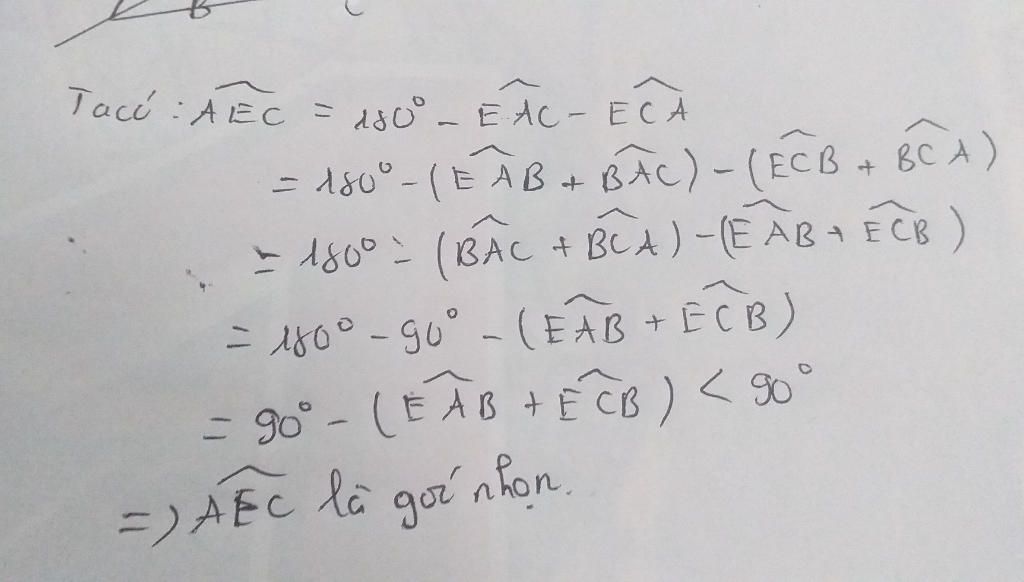 B C
Ta có: \widehat{AEC} = 180° - \widehat{EAC} - \widehat{ECA}
= 180° - (\widehat{EAB} + \widehat{BAC}) - (\widehat{ECB} + \widehat{BCA})
= 180° - (\widehat{BAC} + \widehat{BCA}) - (\widehat{EAB} + \widehat{ECB})
= 180° - 90° - (\widehat{EAB} + \widehat{ECB})
= 90° - (\widehat{EAB} + \widehat{ECB}) < 90°
=> \widehat{AEC} là goć nhọn.